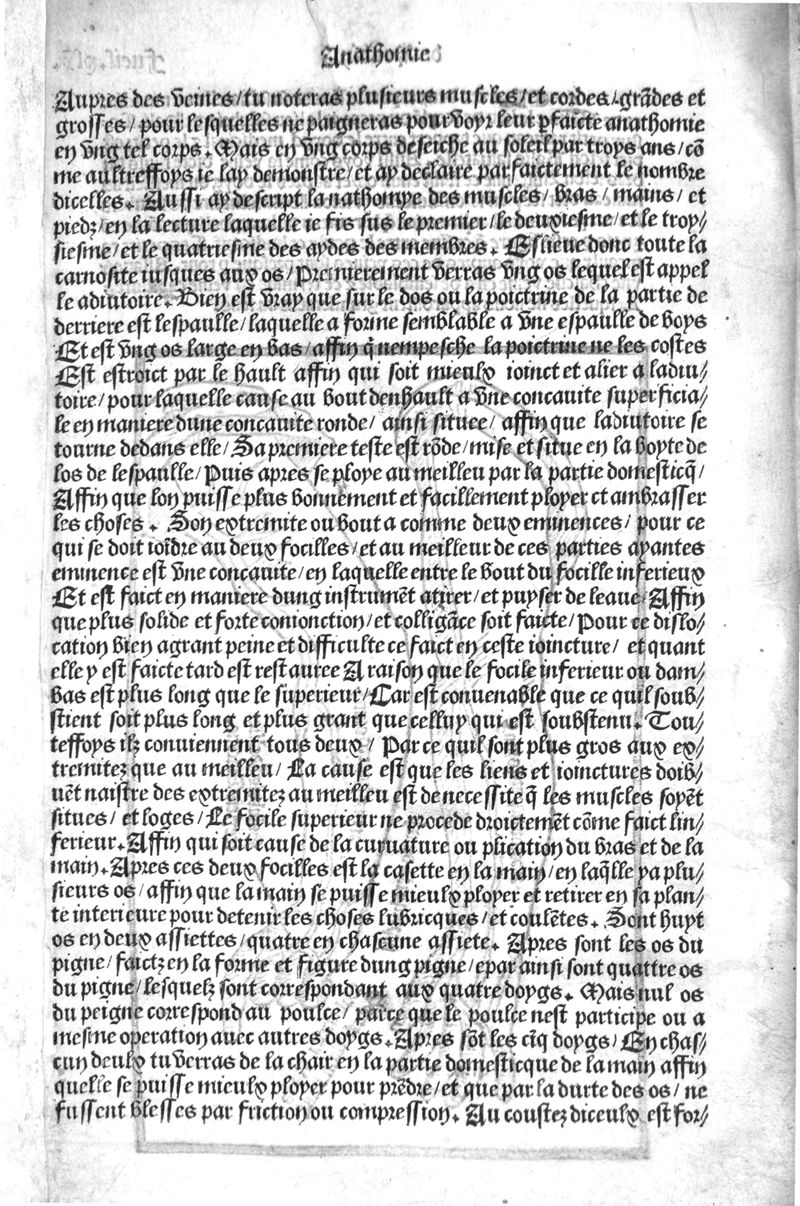 Anathomie
Aupres des veines/tu noteras plusieurs muscles/et cordes/grādes et
grosses/pour lesquelles ne paigneras pour voyr leur ꝑfaicte anathomie
en vng tel corps. Mais en vng corps deseiche au soleil par troys ans/cō
me aultreffoys ie lay demonstre/et ay declaire parfaictement le nombre
dicelles. Aussi ay descript la nathompe des muscles/bras/mains/et
piedz/en la lecture laquelle ie fis sus le premier/le deuxiesme/et le troy//
siesme/et le quatriesme des aydes des membres. Eslieue donc toute la
carnosite iusques aux os/Premierement verras vng os lequel est appel
le adiutoire. Bien est vray que sur le dos ou la poictrine de la partie de
derriere est lespaulle/laquelle a forme semblable a vne espaulle de boys
Et est vng os large en bas/affin q̄ nempesche la poictrine ne les costes
Est estroict par le hault affin qui soit mieulx ioinct et alier a ladiu//
toire/pour laquelle cause au bout denhault a vne concauite superficia/
le en maniere dune concauite ronde/ainsi situee/affin que ladiutoire se
tourne dedans elle/Sa premiere teste est rōde/mise et situe en la boyte de
los de lespaulle/Puis apres se ploye au meilleu par la partie domesticq̄/
Affin que lon puisse plus bonnement et facillement ployer et ambrasser
les choses. Son extremite ou bout a comme deux eminences/pour ce
qui se doit ioīdre au deux focilles/et au meilleur de ces parties ayantes
eminence est vne concauite/en laquelle entre le bout du focille inferieux
Et est faict en maniere dung instrumēt atirer/et puyser de leaue/Affin
que plus solide et forte conionction/et colligāce soit faicte/Pour ce dislo/
cation bien agrant peine et difficulte ce faict en ceste ioincture/et quant
elle y est faicte tard est restauree A raison que le focile inferieur ou dam//
bas est plus long que le superieur/Car est conuenable que ce quil soub//
stient soit plus long et plus grant que celluy qui est soubstenu. Tou//
teffoys ilz conuiennent tous deux/Par ce quil sont plus gros aux ex//
tremitez que au meilleu/La cause est que les liens et ioinctures doib//
uēt naistre des extremitez au meilleu est de necessite q̄ les muscles soyēt
situes/et loges/Le focile superieur ne procede droictemēt cōme faict lin//
ferieur. Affin qui soit cause de la curuature ou plication du bras et de la
main. Apres ces deux focilles est la casette en la main/en laq̄lle ya plu//
sieurs os/affin que la main se puisse mieulx ployer et retirer en sa plan//
te interieure pour detenir les choses lubricques/et coulētes. Sont huyt
os en deux assiettes/quatre en chascune assiete. Apres sont les os du
pigne/faictz en la forme et figure dung pigne/epar ainsi sont quattre os
du pigne/lesquelz sont correspondant aux quatre doygs. Mais nul os
du peigne correspond au poulce/parce que le poulce nest participe ou a
mesme operation auec autres doygs. Apres sōt les cīq doygs/En chas//
cun deulx tu verras de la chair en la partie domesticque de la main affin
quelle se puisse mieulx ployer pour prēdre/et que par la durte des os/ne
fussent blesses par friction ou compression. Au coustez diceulx est for//